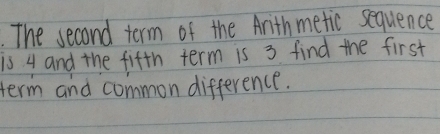 . The second term of the Arithmetic sequence
is 4 and the fifth term is 3 find the first
term and common difference.